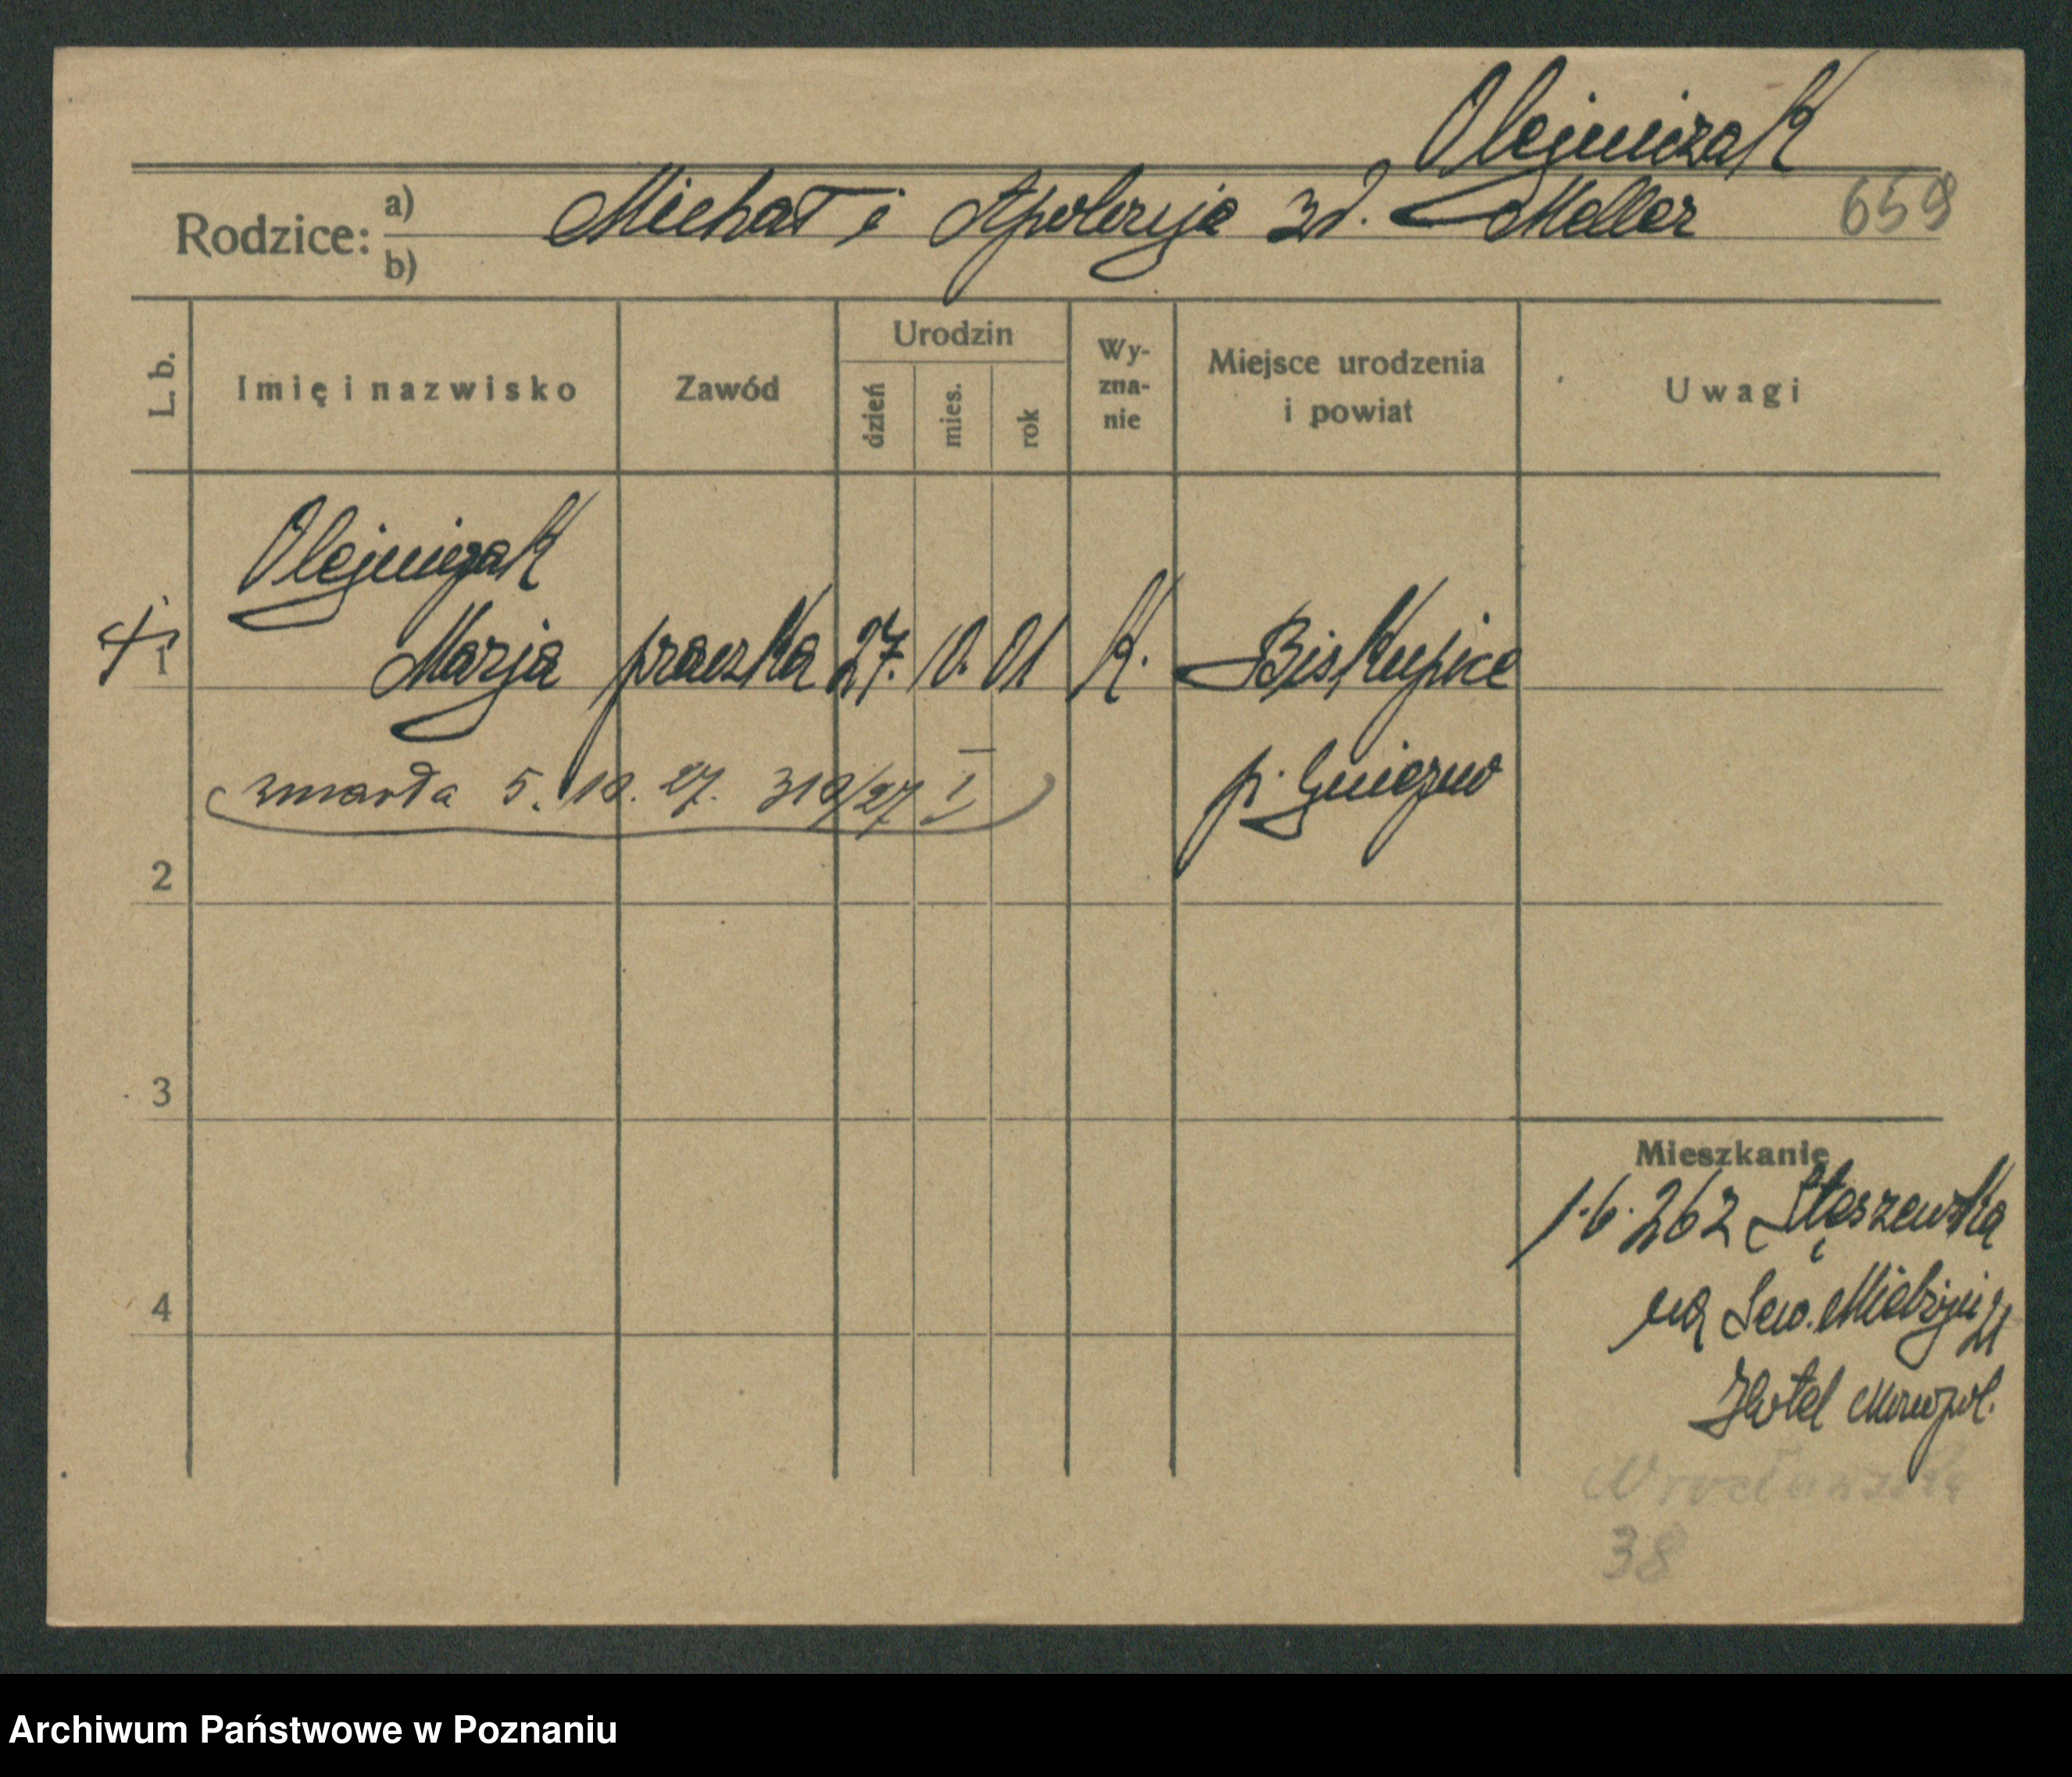 Olejniczak
Rodzice: a) b) Michał i Apolonja zd. Meller 659
L. b. Imię i nazwisko Zawód Urodzin dzień mies. rok Wy-zna-nie Miejsce urodzenia i powiat Uwagi
Olejniczak
1 Marja praczka 27. 10. 01 K. Biskupice
p. Gniezno
zmarła 5. 10. 27. 310/27 I
2
3
Mieszkanie
1.6.26 2 Stęszewska
4
Sew. Mielżyń 21
Hotel Monopol.
Wrocławska
38
Archiwum Państwowe w Poznaniu